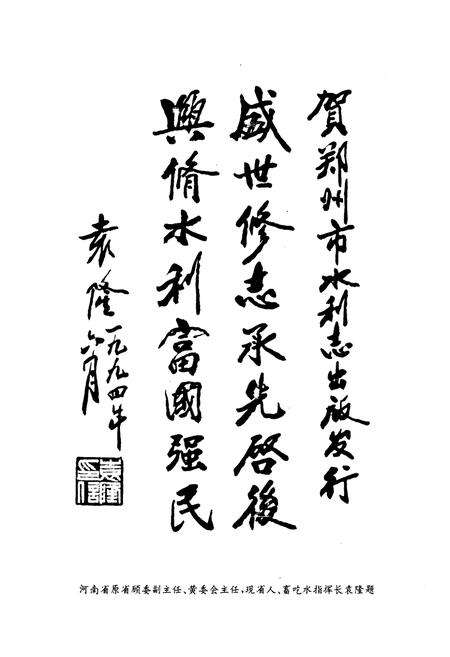 賀郑州市水利志出版发行
盛世修志承先啓後
興脩水利富國强民
袁隆
一九九四年
六月
袁隆印信
河南省原省顾委副主任、黄委会主任,现省人、畜吃水指挥长袁隆题